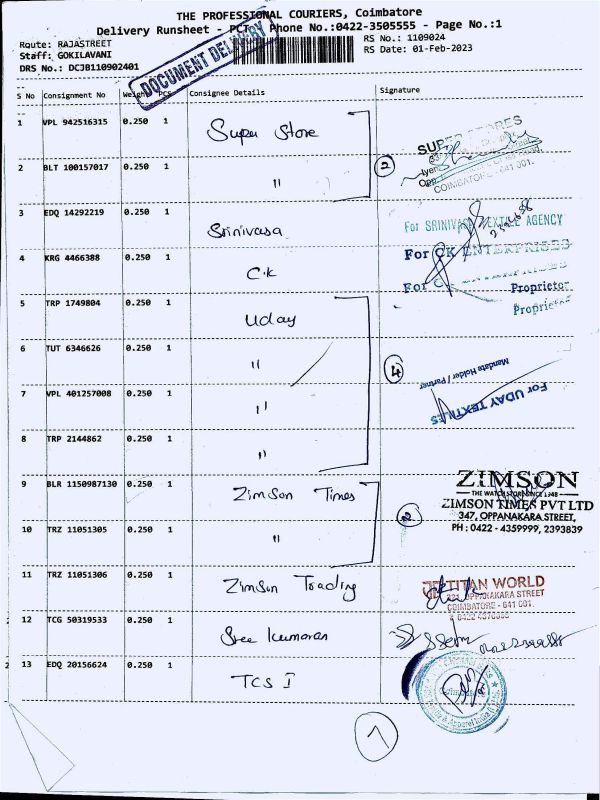 THE PROFESSIONAL COURIERS, Coimbatore
Delivery Runsheet - PCT Phone No.:0422-3505555 - Page No.:1
Route: RAJASTREET
RS No.: 1109024
Staff: GOKILAVANI
RS Date: 01-Feb-2023
DRS No.: DCJB110902401
DOCUMENT DELIVERY
S No Consignment No Weight PCS Consignee Details Signature
1 VPL 942516315 0.250 1 Super Store
SUPER STORES
2 BLT 100157017 0.250 1 "
2
COIMBATORE - 641 001.
3 EDQ 14292219 0.250 1 Srinivasa
For SRINIVASA TEXTILE AGENCY
4 KRG 4466388 0.250 1 C.K
For CK ENTERPRISES
Proprietor
Proprietor
5 TRP 1749804 0.250 1 Uday
6 TUT 6346626 0.250 1 "
4
Mandate Holder / Partner
7 VPL 401257008 0.250 1 "
For UDAY TEXTILES
8 TRP 2144862 0.250 1 "
9 BLR 1150987130 0.250 1 Zimson Times
ZIMSON
THE WATCH STORE SINCE 1948
ZIMSON TIMES PVT LTD
347, OPPANAKARA STREET,
PH : 0422 - 4359999, 2393839
2
10 TRZ 11051305 0.250 1 "
11 TRZ 11051306 0.250 1 Zimson Trading
TITAN WORLD
OPPANAKARA STREET
COIMBATORE - 641 001.
12 TCG 50319533 0.250 1 Sree Kumaran
13 EDQ 20156624 0.250 1 TCS I
7